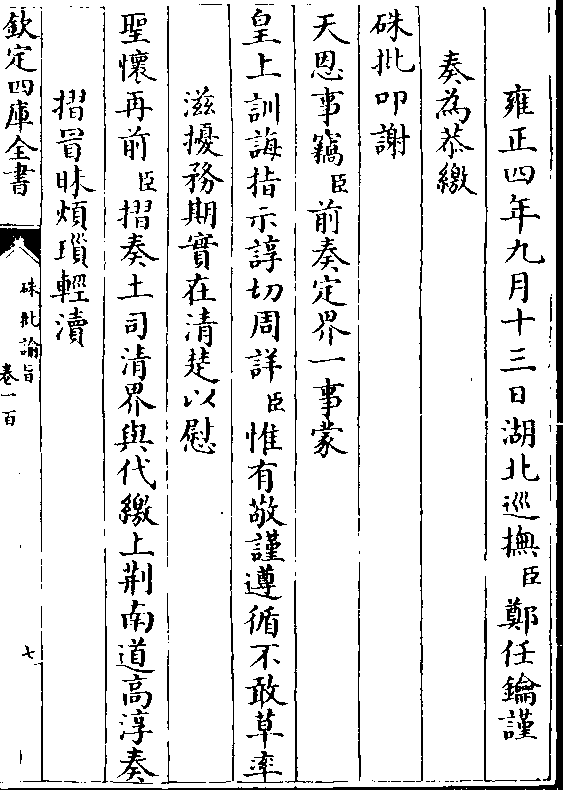 雍正四年九月十三日湖北巡撫臣鄭任鑰謹
奏為恭繳
硃批叩謝
天恩事竊臣前奏定界一事蒙
皇上訓誨指示諄切周詳臣惟有敬謹遵循不敢草率
滋擾務期實在清楚以慰
聖懷再前臣摺奏土司清界與代繳上荆南道高淳奏
摺冐昧煩瑣輕瀆
欽定四庫全書
硃批諭旨
卷一百
七